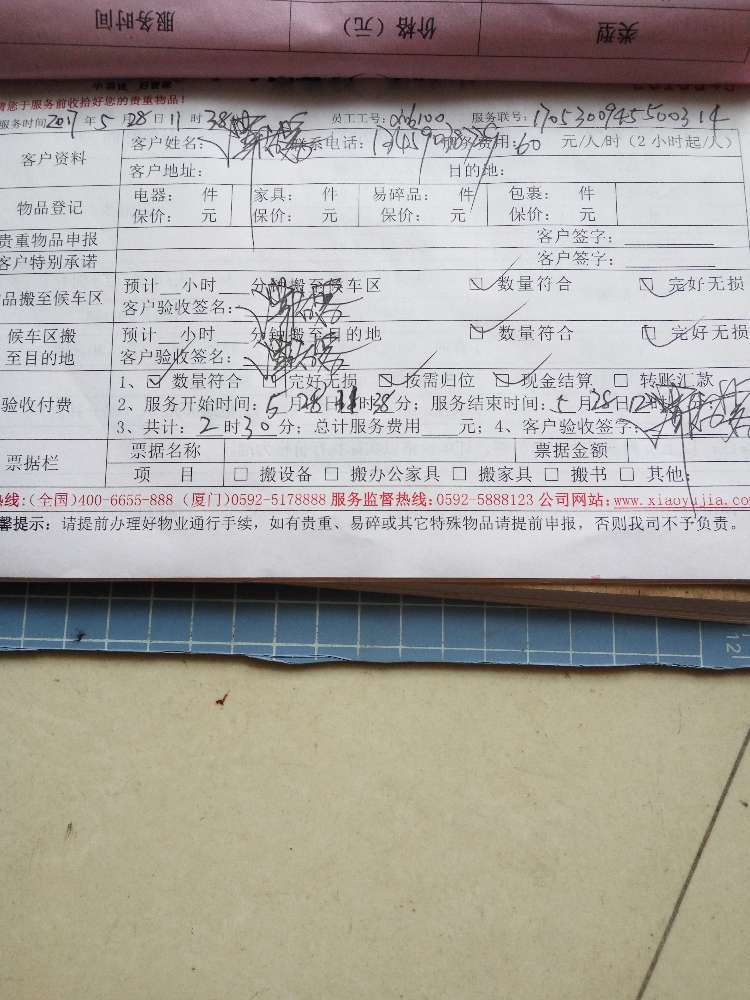 类型 价格（元） 服务时间
请您于服务前收拾好您的贵重物品！
服务时间 2017 年 5 月 28 日 11 时 38 员工工号: 服务联号:
客户资料 客户姓名: 联系电话: 费用: 60 元/人/时（2小时起/人）
客户地址: 目的地:
物品登记 电器: 件 家具: 件 易碎品: 件 包裹: 件
保价: 元 保价: 元 保价: 元 保价: 元
贵重物品申报 客户签字:
客户特别承诺 客户签字:
品搬至候车区 预计__小时__分钟搬至候车区 ☑ 数量符合 ☑ 完好无损
客户验收签名:
候车区搬 预计__小时__分钟搬至目的地 ☑ 数量符合 ☑ 完好无损
至目的地 客户验收签名:
验收付费 1、☑ 数量符合 ☑ 完好无损 ☑ 按需归位 ☑ 现金结算 □ 转账汇款
2、服务开始时间: 5 月 28 日 11 时 38 分; 服务结束时间: 5 月 28 日 12 时
3、共计: 2 时 30 分; 总计服务费用__元; 4、客户验收签字:
票据栏 票据名称 票据金额
项 目 □ 搬设备 □ 搬办公家具 □ 搬家具 □ 搬书 □ 其他:
热线:(全国)400-6655-888 (厦门)0592-5178888 服务监督热线:0592-5888123 公司网站:www.xiaoyujia.com
馨提示: 请提前办理好物业通行手续，如有贵重、易碎或其它特殊物品请提前申报，否则我司不予负责。
12